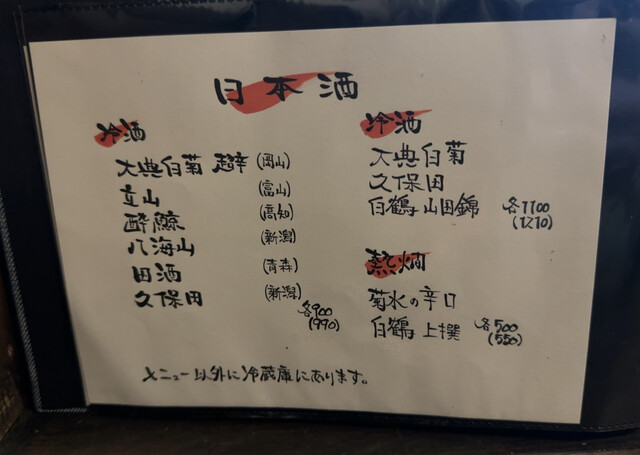 日本酒
冷酒
大典白菊 超辛 (岡山)
立山 (富山)
酔鯨 (高知)
八海山 (新潟)
田酒 (青森)
久保田 (新潟)
各900
(990)
冷酒
大典白菊
久保田
白鶴 山田錦 各1100
(1210)
熱燗
菊水の辛口
白鶴 上撰 各500
(550)
メニュー以外に冷蔵庫にあります。